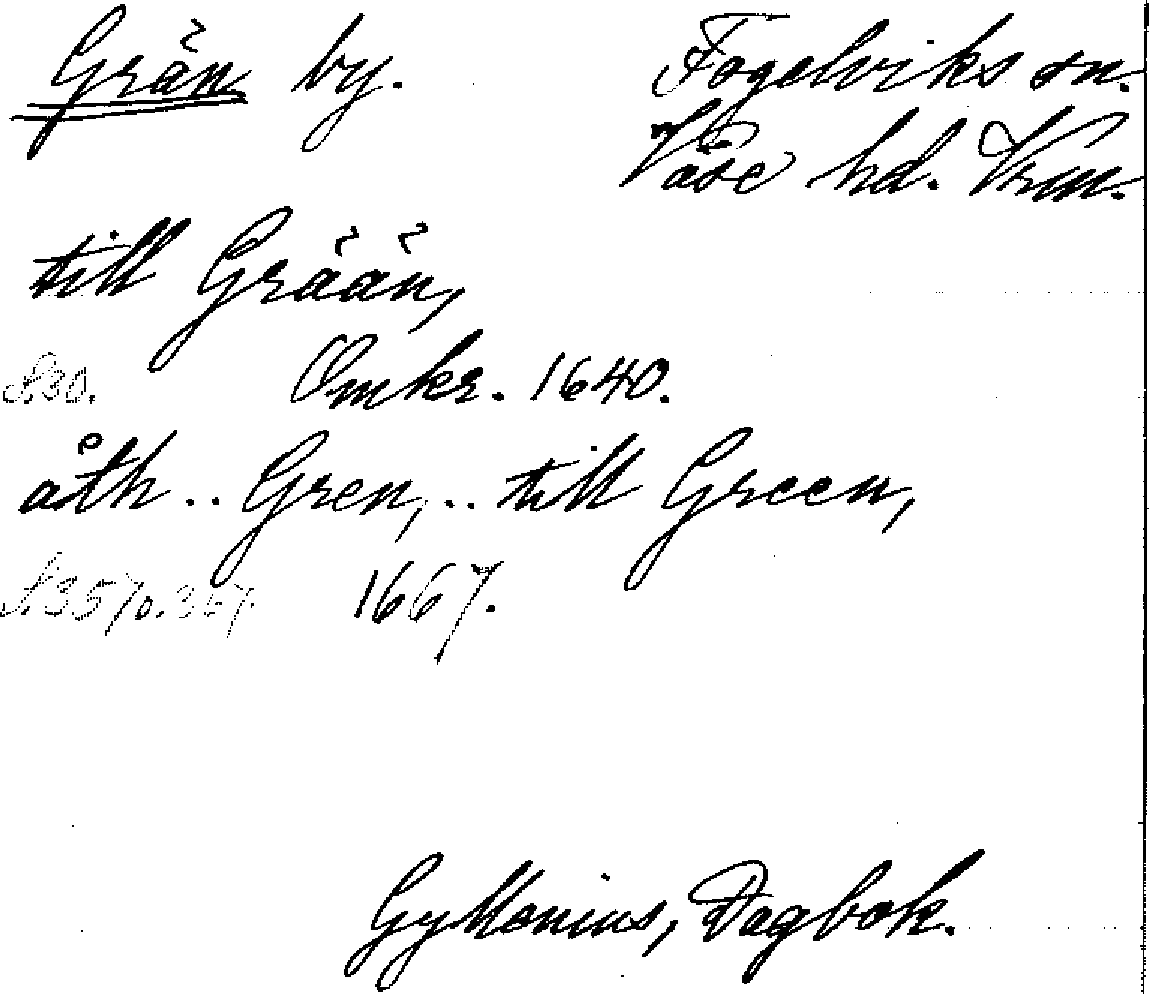 Grän by. Fogelviks sn.
Väse hd. Vrm.
till Grään,
s.30. Omkr. 1640.
åth .. Gren, .. till Green,
s.357 o. 367. 1667.
Gyllenius, Dagbok.